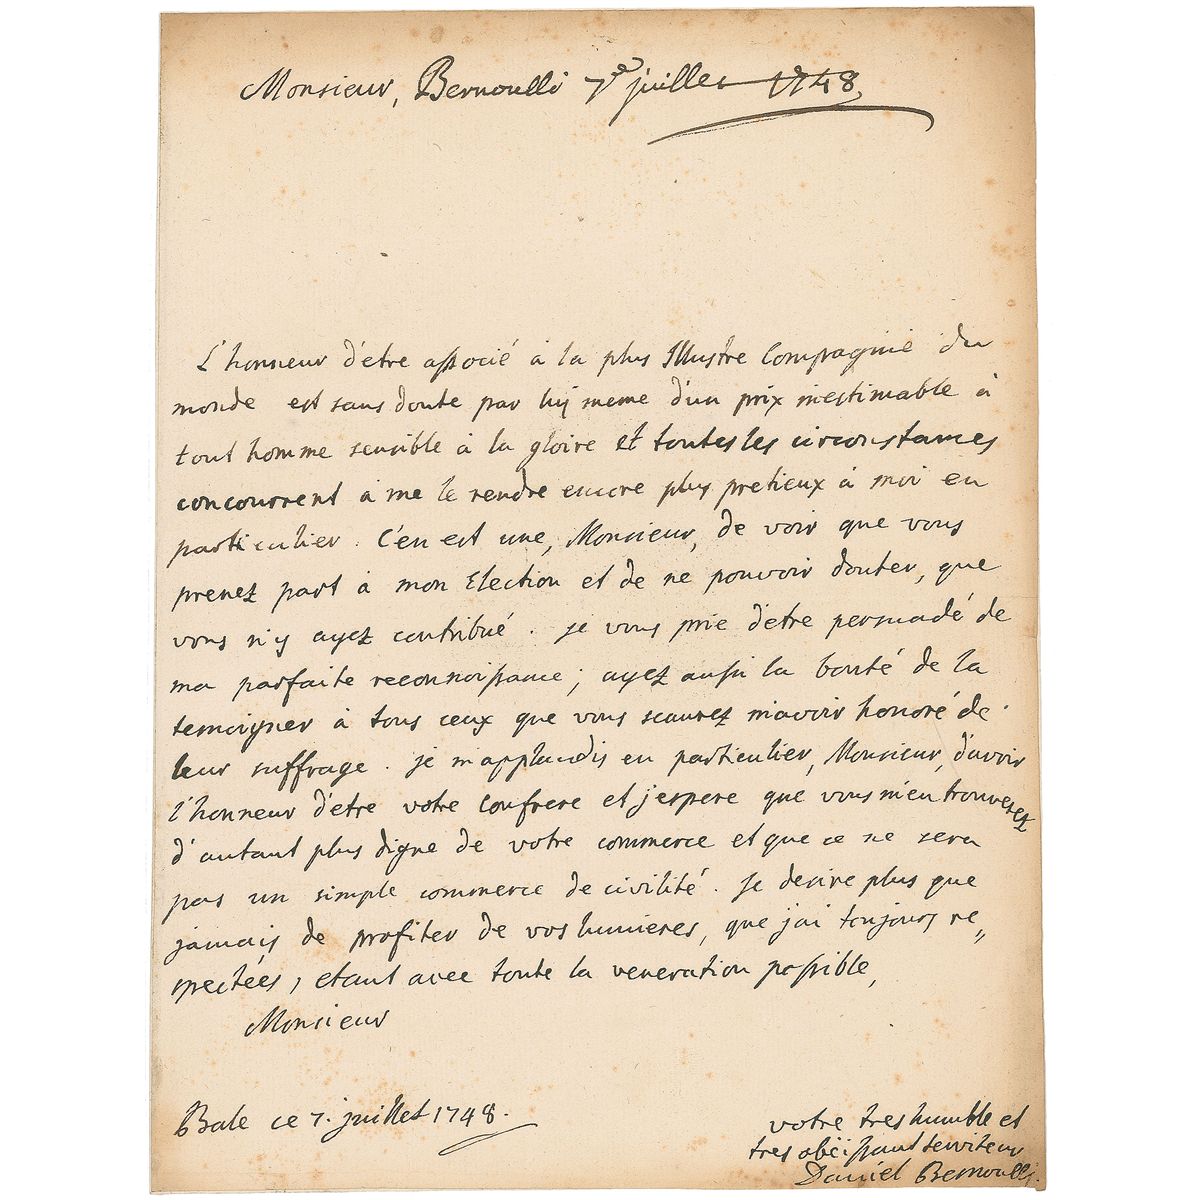 Monsieur, Bernoulli 7e juillet 1748
L'honneur d'etre associé à la plus Illustre Compagnie du
monde est sans doute par luy meme d'un prix inestimable à
tout homme sensible à la gloire et toutes les circonstances
concourrent à me le rendre encore plus pretieux à moi en
particulier. C'en est une, Monsieur, de voir que vous
prenez part à mon Election et de ne pouvoir douter, que
vous n'y ayez contribué. je vous prie d'etre persuadé de
ma parfaite reconnoissance; ayez aussi la bonté de la
temoigner à tous ceux que vous scaurez m'avoir honoré de
leur suffrage. je m'applaudis en particulier, Monsieur, d'avoir
l'honneur d'etre votre Confrere et j'espere que vous m'en trouverez
d'autant plus digne de votre commerce et que ce ne sera
pas un simple commerce de civilité. Je desire plus que
jamais de profiter de vos lumieres, que j'ai toujours re„
spectées, etant avec toute la veneration possible,
Monsieur
Bale ce 7. juillet 1748.
votre tres humble et
tres obëissant serviteur
Daniel Bernoulli.